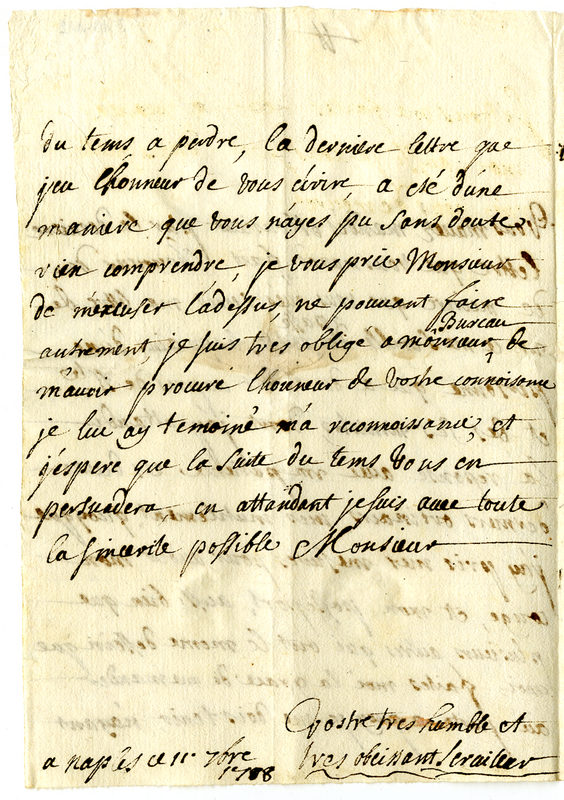 du tems a perdre, la derniere lettre que
jeu lhonneur de vous écrire, a eté dune
maniere que vous nayes pu sans doute
rien comprendre, je vous prie Monsieur
de mexcuser ladessus, ne pouvant faire
autrement, je suis tres obligé a monsieur Bureau de
mauoir procuré lhonneur de vostre connoisance
je lui ay temoiné ma reconnoissance, et
jespere que la suite du tems vous en
persuadera, en attandant je suis avec toute
la sincerite possible Monsieur
vostre tres humble et
tres obeissant seruiteur
a naples ce 11 7bre
1708